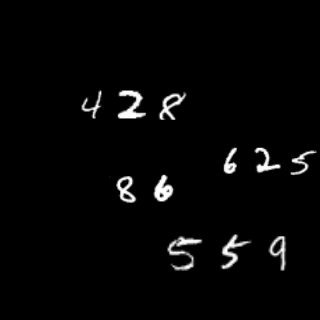 428
625
86
559